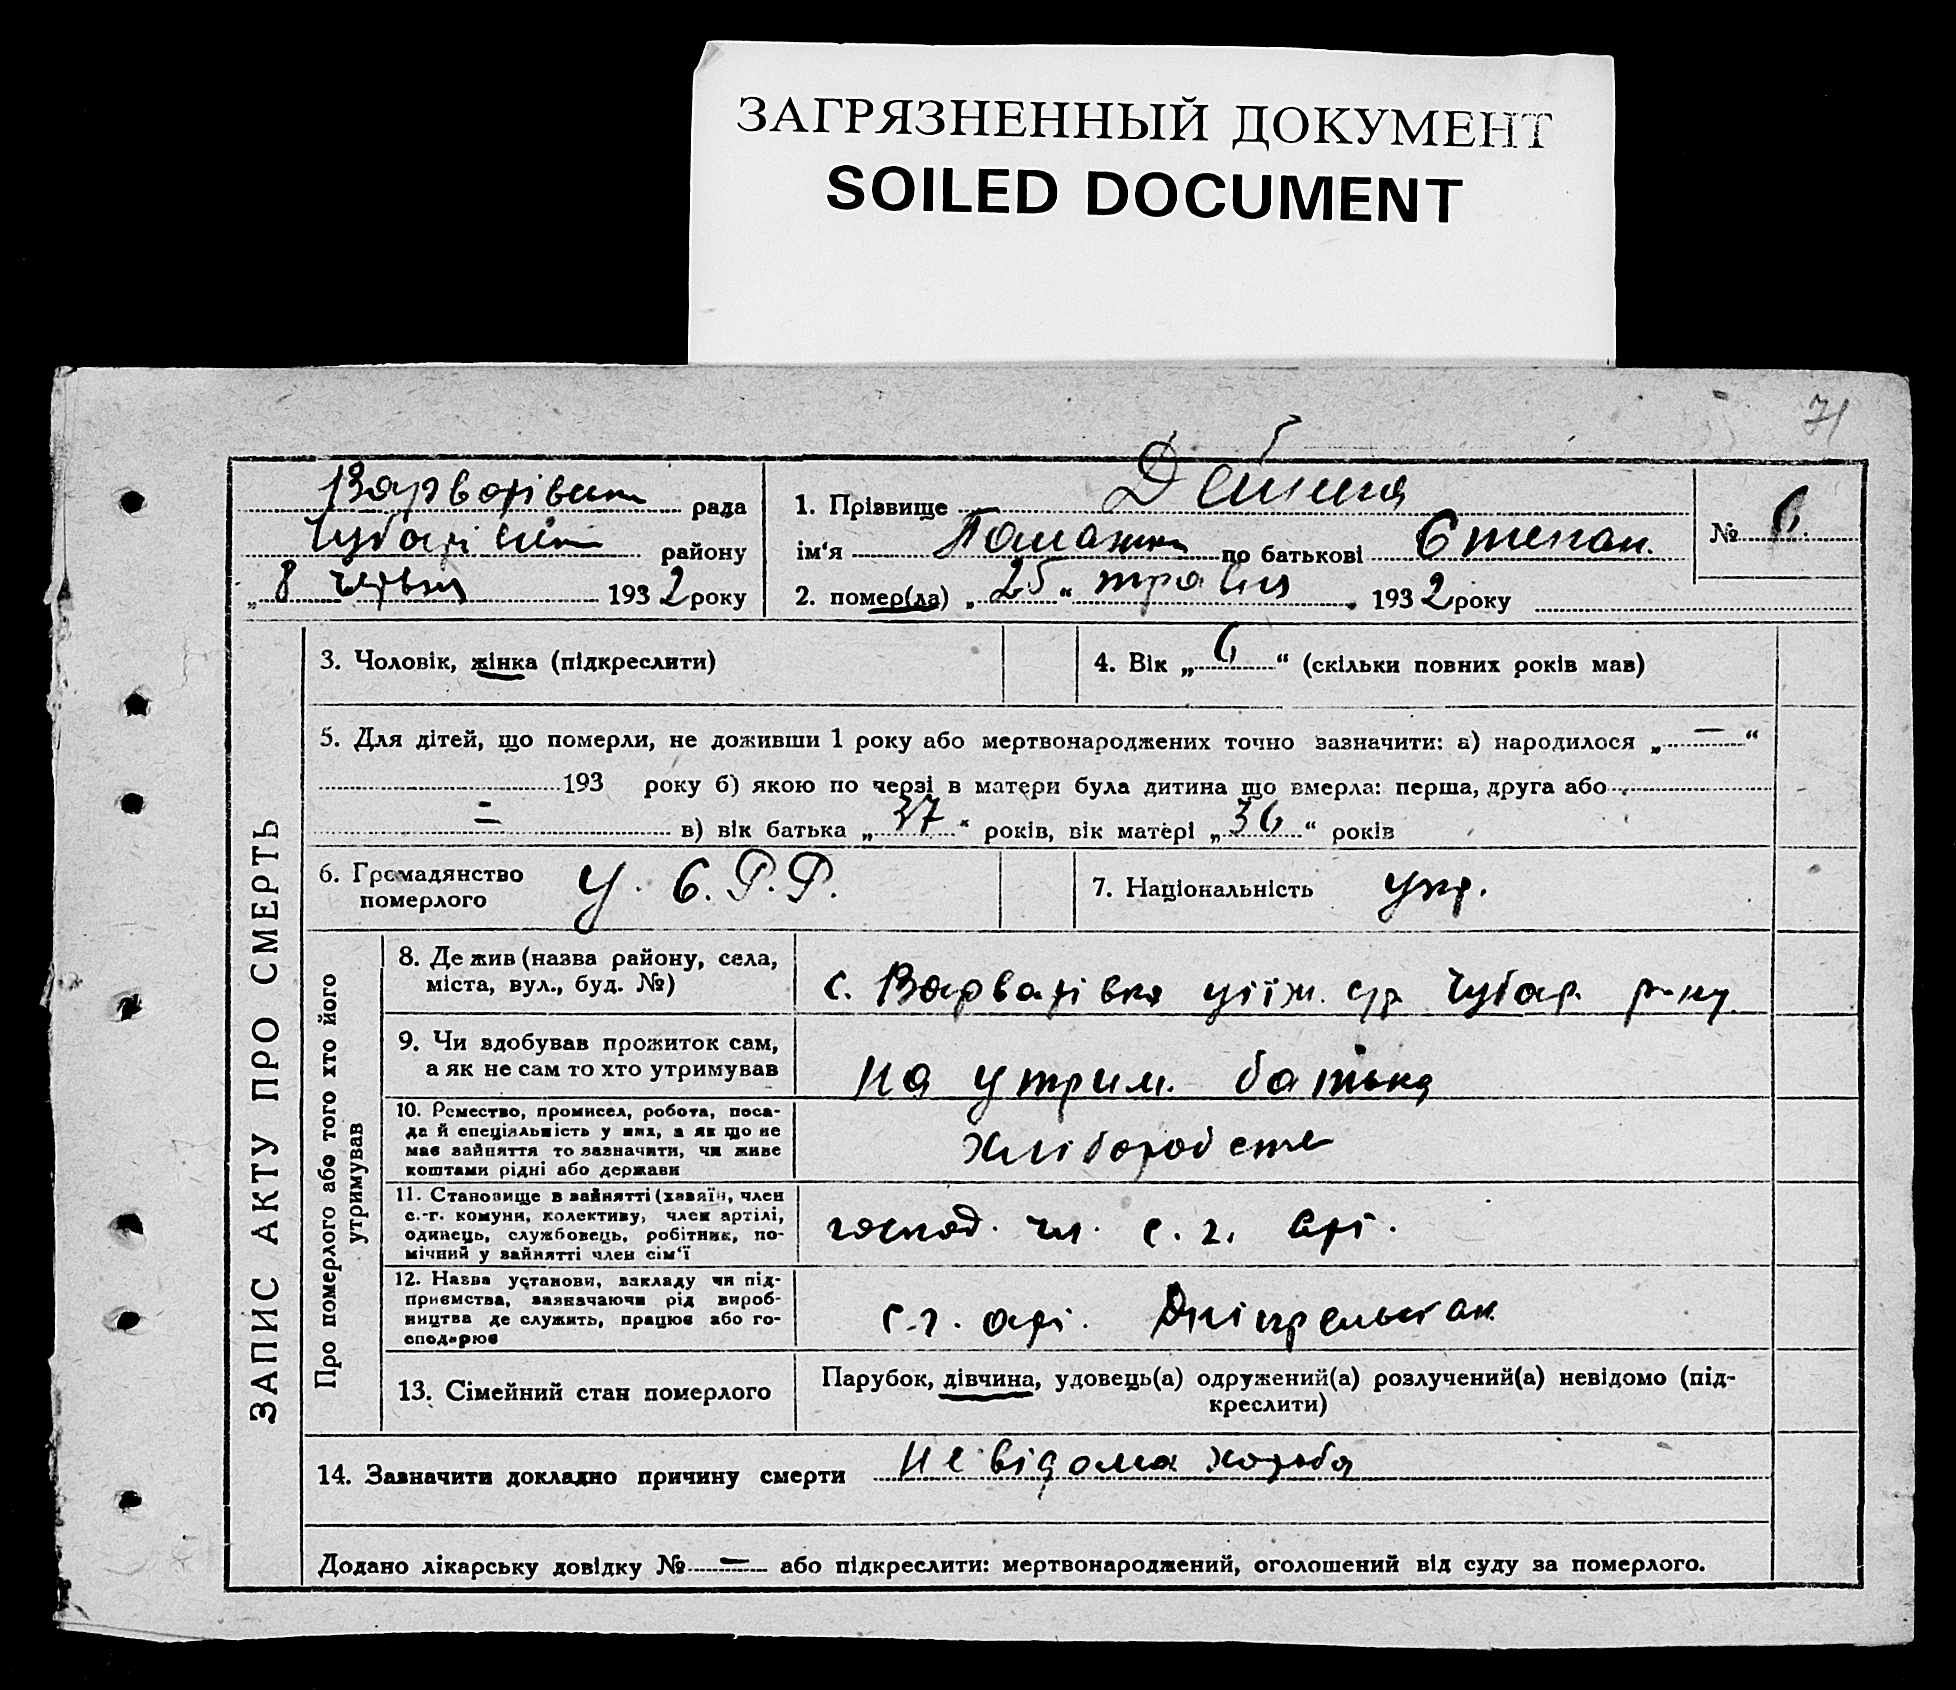 ЗАГРЯЗНЕННЫЙ ДОКУМЕНТ
SOILED DOCUMENT
71
Варварівська рада
Чубарівськ району
„ 8 червня 1932 року
1. Прізвище
ім‘я по батькові Степан.
2. помер(ла) „ 25 “ травня 1932 року
№ 6.
ЗАПИС АКТУ ПРО СМЕРТЬ
3. Чоловік, жінка (підкреслити)
4. Вік „ 6 “ (скільки повних років мав)
5. Для дітей, що померли, не доживши 1 року або мертвонароджених точно зазначити: а) народилося „ — “
193 року б) якою по черзі в матери була дитина що вмерла: перша, друга або
= в) вік батька „ 37 “ років, вік матері „ 36 “ років
6. Громадянство
померлого
У. С. Р. Р.
7. Національність укр.
Про померлого або того хто його
утримував
8. Де жив (назва району, села,
міста, вул., буд. №)
с. Варварівка Чубар. р-ну
9. Чи здобував прожиток сам,
а як не сам то хто утримував
На утрим. батька
10. Ремество, промисел, робота, поса-
да й спеціяльність у них, а як що не
має зайняття то зазначити, чи живе
коштами рідні або держави
Хліборобств
11. Становище в зайнятті (хазяїн, член
с.-г. комуни, колективу, член артілі,
одинець, службовець, робітник, по-
мічний у зайнятті член сім‘ї
господ. чл. с. г. арт.
12. Назва установи, закладу чи під-
приємства, зазначаючи рід вироб-
ництва де служить, працює або го-
сподарює
с.-г. арт.
13. Сімейний стан померлого
Парубок, дівчина, удовець(а) одружений(а) розлучений(а) невідомо (під-
креслити)
14. Зазначити докладно причину смерти Невідома хороба
Додано лікарську довідку № = або підкреслити: мертвонароджений, оголошений від суду за померлого.